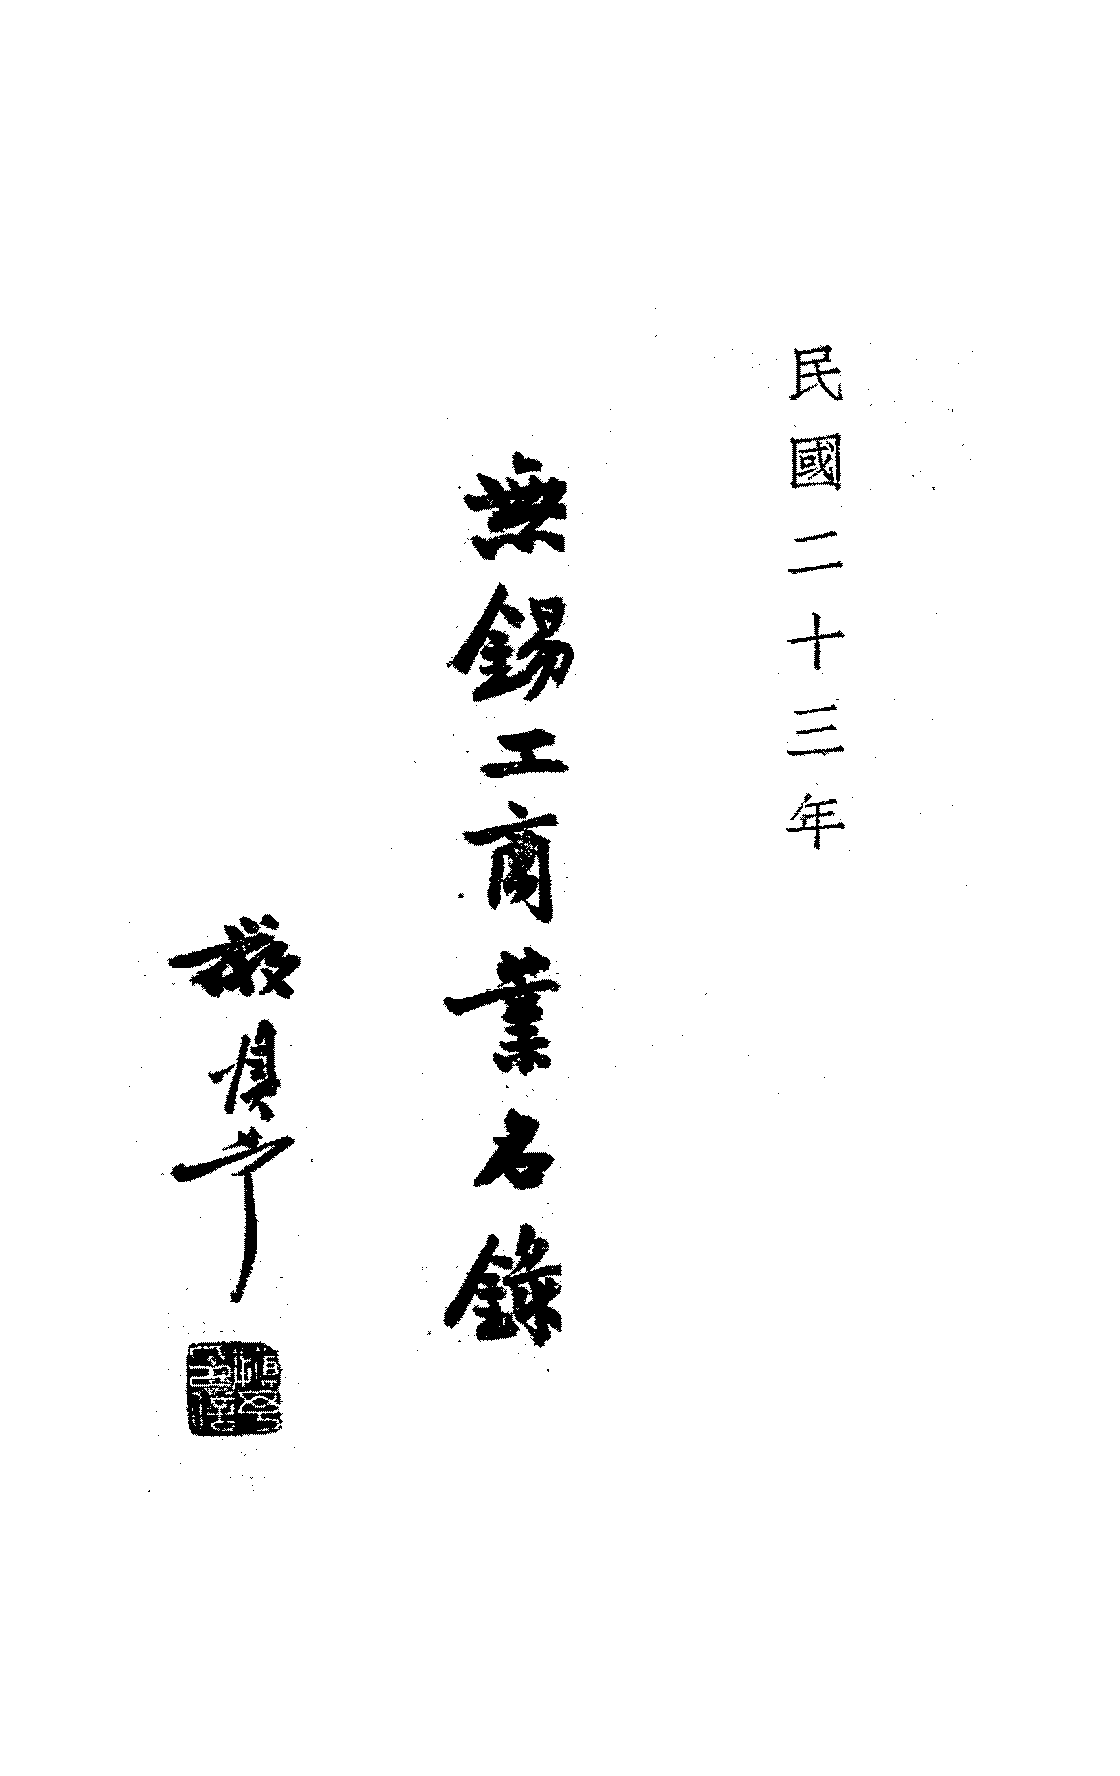 民國二十三年
無錫工商業名錄